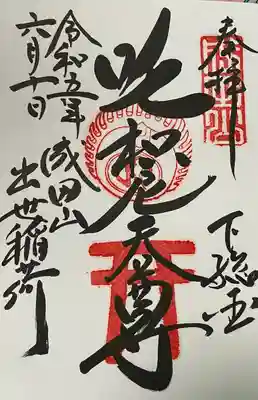 奉拝
下総国
吒枳尼天尊
成田山
出世稲荷
令和五年
六月十一日